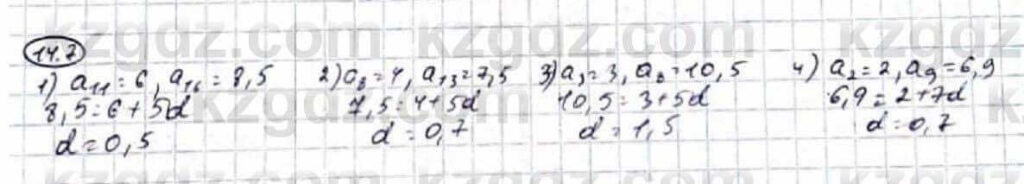 14.7
1) a₁₁ = 6, a₁₆ = 8,5
8,5 = 6 + 5d
d = 0,5
2) a₈ = 4, a₁₃ = 7,5
7,5 = 4 + 5d
d = 0,7
3) a₃ = 3, a₈ = 10,5
10,5 = 3 + 5d
d = 1,5
4) a₂ = 2, a₉ = 6,9
6,9 = 2 + 7d
d = 0,7
kzgdz.com kzgdz.com
kzgdz.com